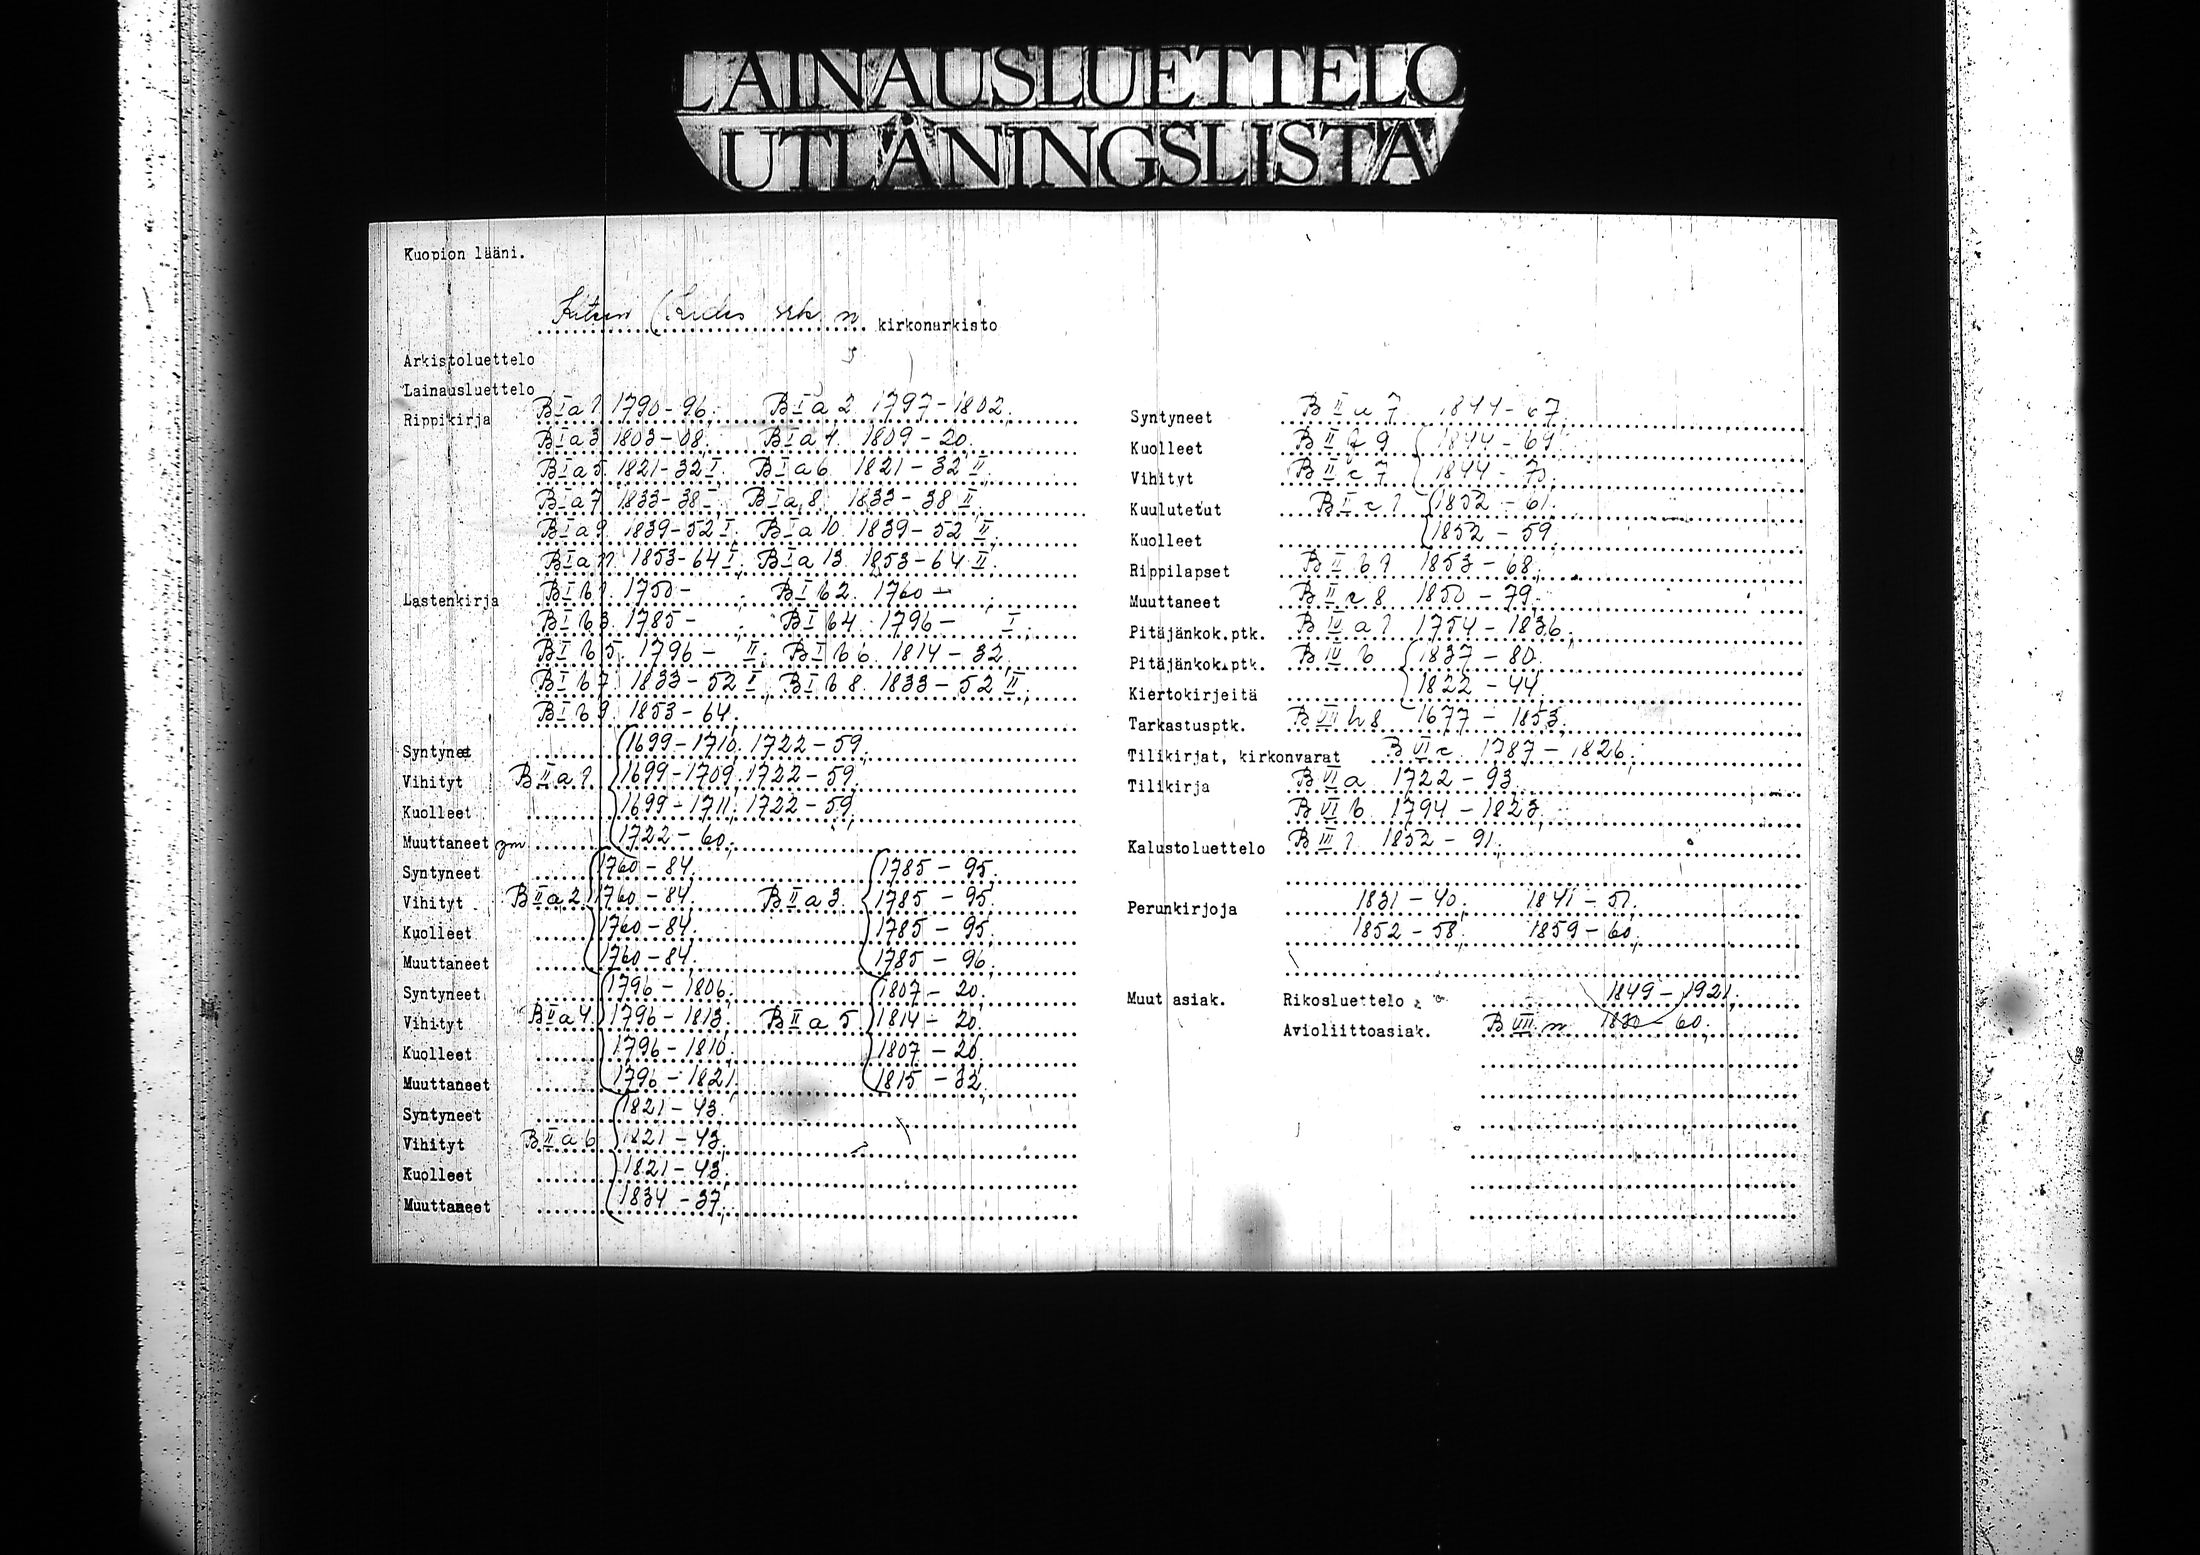 LAINAUSLUETTELO
UTLÅNINGSLISTA
Kuopion lääni.
srk n kirkonarkisto
Arkistoluettelo
Lainausluettelo
Rippikirja B I a 1 1790-96; B I a 2 1797-1802;
B I a 3 1803-08; B I a 4 1809-20;
B I a 5 1821-32 I; B I a 6 1821-32 II;
B I a 7 1833-38 I; B I a 8 1833-38 II;
B I a 9 1839-52 I; B I a 10 1839-52 II;
B I a 1853-64 I; B I a 13 1853-64 II;
Lastenkirja B I b 1 1750- ; B I b 2 1760- ;
B I b 3 1785- ; B I b 4 1796- I;
B I b 5 1796- II; B I b 6 1814-32;
B I b 7 1833-52 I; B I b 8 1833-52 II;
B I b 9 1853-64;
Syntyneet 1699-1710; 1722-59;
Vihityt B II a 1 1699-1709; 1722-59;
Kuolleet 1699-1711; 1722-59;
Muuttaneet ym 1722-60;
Syntyneet 1760-84; 1785-95;
Vihityt B II a 2 1760-84; B II a 3 1785-95;
Kuolleet 1760-84; 1785-95;
Muuttaneet 1760-84; 1785-96;
Syntyneet 1796-1806; 1807-20;
Vihityt B II a 4 1796-1813; B II a 5 1814-20;
Kuolleet 1796-1810; 1807-20;
Muuttaneet 1796-1821; 1815-32;
Syntyneet 1821-43;
Vihityt B II a 6 1821-43;
Kuolleet 1821-43;
Muuttaneet 1834-37;
Syntyneet B II a 7 1844-67;
Kuolleet B II 9 1844-69;
Vihityt B II c 7 1844-
Kuulutetut c 1 1852-61;
Kuolleet 1852-59;
Rippilapset B II b 1 1853-68;
Muuttaneet B II 8 1850-79;
Pitäjänkok.ptk. a 1 1754-1836;
Pitäjänkok.ptk. b 1837-80;
Kiertokirjeitä 1822-44;
Tarkastusptk. B VII h 8 1677-1853;
Tilikirjat, kirkonvarat B VI c 1787-1826;
Tilikirja B VI a 1722-93;
B VI b 1794-1823;
Kalustoluettelo B III 1 1852-91;
Perunkirjoja 1831-40; 1841-51;
1852-58; 1859-60;
Muut asiak. Rikosluettelo 1849-1921;
Avioliittoasiak. B VII m 60;